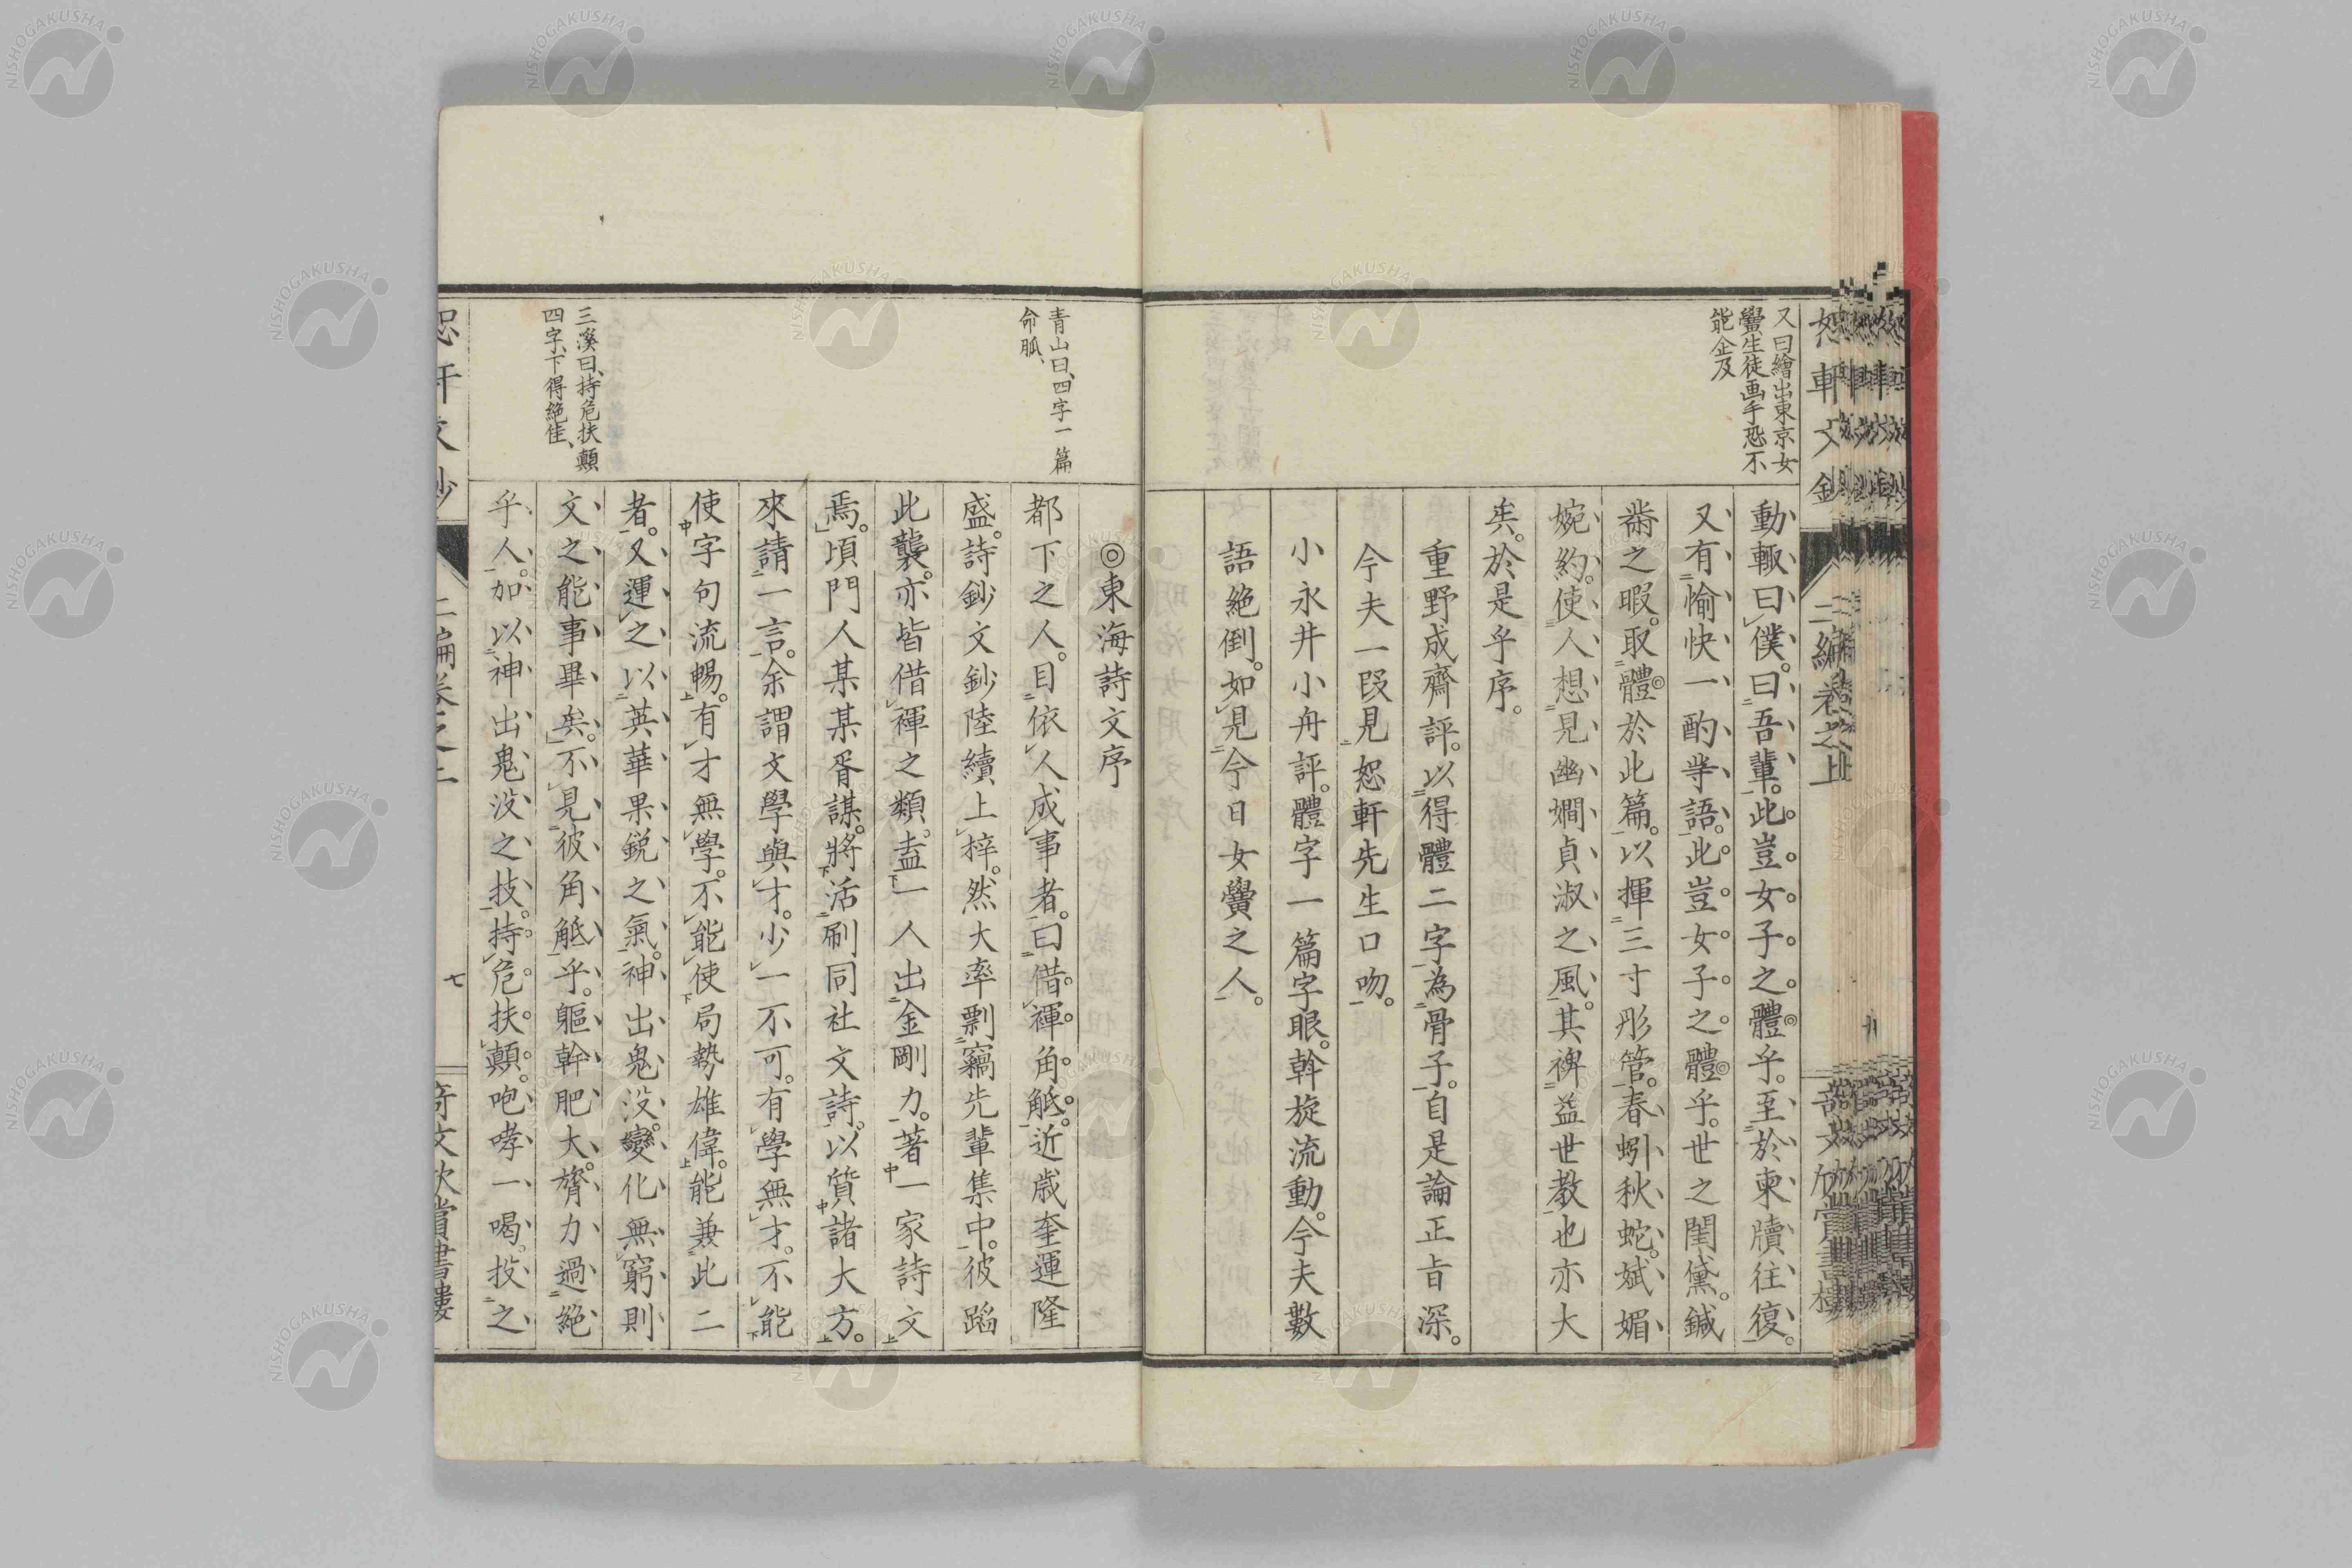 又曰繪出東京女
黌生徒画手恐不
能企及
動輙曰僕。曰吾輩。此豈女子之體乎。至於柬牘往復。
又有愉快一酌等語。此豈女子之體乎。世之閨黛。鍼
黹之暇。取體於此篇。以揮三寸彤管。春蚓秋蛇。斌媚
婉約。使人想見幽嫺貞淑之風。其裨益世教也亦大
矣。於是乎序。
重野成齋評。以得體二字為骨子。自是論正旨深。
今夫一段見恕軒先生口吻。
小永井小舟評。體字一篇字眼。斡旋流動。今夫數
語絶倒。如見今日女黌之人。
青山曰、四字一篇
命脈、
三溪曰、持危扶顛
四字、下得絶佳、
◎東海詩文序
都下之人。目依人成事者。曰借褌角觝。近歳奎運隆
盛。詩鈔文鈔陸續上梓。然大率剽竊先輩集中。彼蹈
此襲。亦皆借褌之類。盍一人出金剛力。著一家詩文
焉。頃門人某某胥謀。將活刷同社文詩。以質諸大方。
來請一言。余謂文學與才。少一不可。有學無才。不能
使字句流暢。有才無學。不能使局勢雄偉。能兼此二
者。又運之以英華果鋭之氣。神出鬼没。變化無窮則
文之能事畢矣。不見彼角觝乎。軀幹肥大。膂力過絶
乎人。加以神出鬼没之技。持危扶顛。咆哮一喝。投之
二編卷之上
七